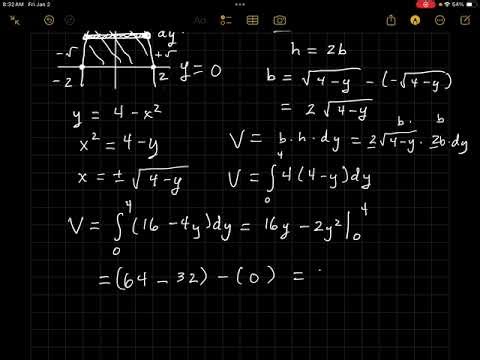 8:32 AM Fri Jan 2
54%
dy
-√
+√
-2
2
y = 0
h = 2b
b = √(4-y) - (-√(4-y))
= 2√(4-y)
y = 4 - x²
x² = 4 - y
x = ± √(4-y)
b. b
V = b · h · dy = 2√(4-y) · 2b · dy
V = ∫₀⁴ 4(4-y)dy
V = ∫₀⁴ (16 - 4y)dy = 16y - 2y² |₀⁴
= (64 - 32) - (0) =